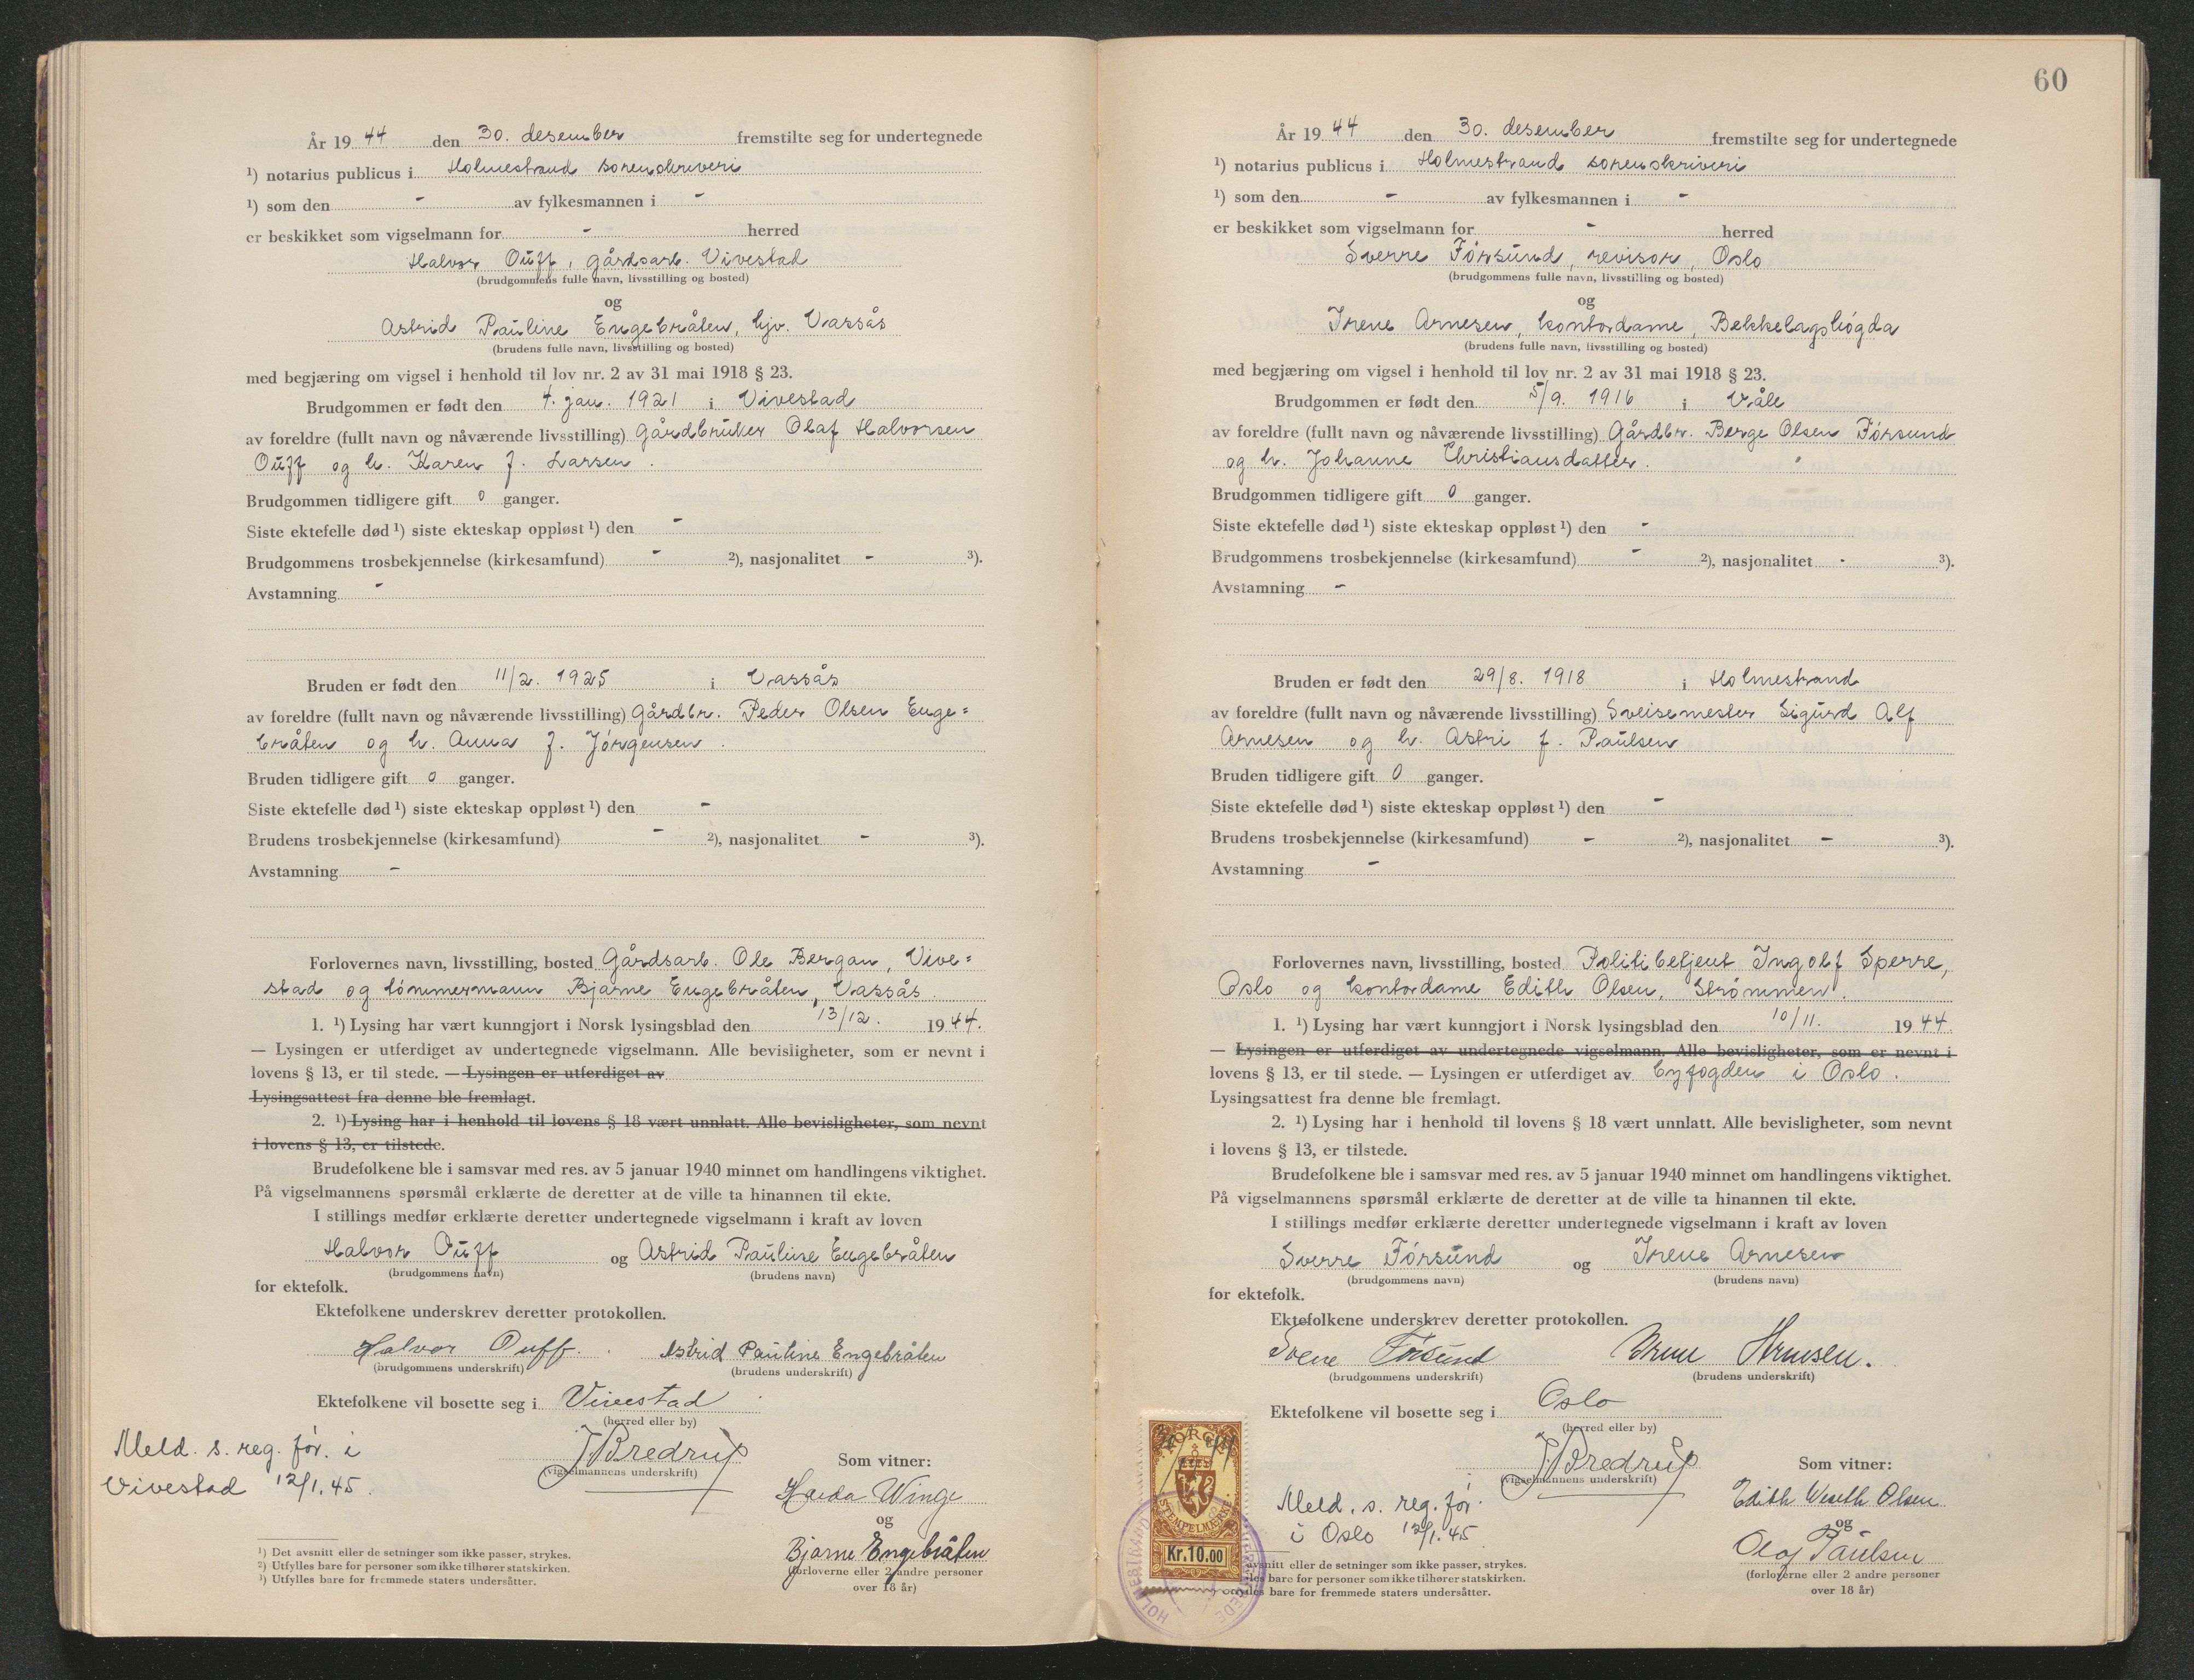 År 19 44 den 30. desember fremstilte seg for undertegnede
¹) notarius publicus i Holmestrand sorenskriveri
¹) som den - av fylkesmannen i -
er beskikket som vigselmann for - herred
Halvor Ouff, gårdsarb. Vivestad
(brudgommens fulle navn, livsstilling og bosted)
og
Astrid Pauline Engebråten, hjv. Vassås
(brudens fulle navn, livsstilling og bosted)
med begjæring om vigsel i henhold til lov nr. 2 av 31 mai 1918 § 23.
Brudgommen er født den 4. jan. 1921 i Vivestad
av foreldre (fullt navn og nåværende livsstilling) Gårdbruker Olaf Halvorsen
Ouff og h. Karen f. Larsen.
Brudgommen tidligere gift 0 ganger.
Siste ektefelle død ¹) siste ekteskap oppløst ¹) den -
Brudgommens trosbekjennelse (kirkesamfund) - ²), nasjonalitet - ³).
Avstamning -
Bruden er født den 11/2. 1925 i Vassås
av foreldre (fullt navn og nåværende livsstilling) Gårdbr. Peder Olsen Enge=
bråten og h. Anna f. Jørgensen.
Bruden tidligere gift 0 ganger.
Siste ektefelle død ¹) siste ekteskap oppløst ¹) den -
Brudens trosbekjennelse (kirkesamfund) - ²), nasjonalitet - ³).
Avstamning -
Forlovernes navn, livsstilling, bosted Gårdsarb. Ole Bergan, Vive=
stad og tömmermann Bjarne Engebråten, Vassås.
1. ¹) Lysing har vært kunngjort i Norsk lysingsblad den 13/12. 19 44.
— Lysingen er utferdiget av undertegnede vigselmann. Alle bevisligheter, som er nevnt i
lovens § 13, er til stede. — Lysingen er utferdiget av
Lysingsattest fra denne ble fremlagt.
2. ¹) Lysing har i henhold til lovens § 18 vært unnlatt. Alle bevisligheter, som nevnt
i lovens § 13, er tilstede.
Brudefolkene ble i samsvar med res. av 5 januar 1940 minnet om handlingens viktighet.
På vigselmannens spørsmål erklærte de deretter at de ville ta hinannen til ekte.
I stillings medfør erklærte deretter undertegnede vigselmann i kraft av loven
Halvor Ouff og Astrid Pauline Engebråten
(brudgommens navn) (brudens navn)
for ektefolk.
Ektefolkene underskrev deretter protokollen.
Halvor Ouff. Astrid Pauline Engebråten
(brudgommens underskrift) (brudens underskrift)
Ektefolkene vil bosette seg i Vivestad
(herred eller by)
Meld. s. reg. för. i
Vivestad 12/1.45.
J Bredrup
(vigselmannens underskrift)
Som vitner:
Winge
og
Bjarne Engebråten
(forloverne eller 2 andre personer
over 18 år)
¹) Det avsnitt eller de setninger som ikke passer, strykes.
²) Utfylles bare for personer som ikke tilhører statskirken.
³) Utfylles bare for fremmede staters undersåtter.
60
År 19 44 den 30. desember fremstilte seg for undertegnede
¹) notarius publicus i Holmestrand sorenskriveri
¹) som den - av fylkesmannen i -
er beskikket som vigselmann for - herred
Sverre Försund, revisor, Oslo
(brudgommens fulle navn, livsstilling og bosted)
og
Irene Arnesen, kontordame, Bekkelagshögda
(brudens fulle navn, livsstilling og bosted)
med begjæring om vigsel i henhold til lov nr. 2 av 31 mai 1918 § 23.
Brudgommen er født den 5/9. 1916 i Våle
av foreldre (fullt navn og nåværende livsstilling) Gårdbr. Berge Olsen Försund
og h. Johanne Christiansdatter.
Brudgommen tidligere gift 0 ganger.
Siste ektefelle død ¹) siste ekteskap oppløst ¹) den -
Brudgommens trosbekjennelse (kirkesamfund) - ²), nasjonalitet - ³).
Avstamning -
Bruden er født den 29/8. 1918 i Holmestrand
av foreldre (fullt navn og nåværende livsstilling) Sveisemester Sigurd Alf
Arnesen og h. Astri f. Paulsen
Bruden tidligere gift 0 ganger.
Siste ektefelle død ¹) siste ekteskap oppløst ¹) den -
Brudens trosbekjennelse (kirkesamfund) - ²), nasjonalitet - ³).
Avstamning -
Forlovernes navn, livsstilling, bosted Politibetjent Ingolf Sperre,
Oslo og kontordame Edith Olsen, Strömmen.
1. ¹) Lysing har vært kunngjort i Norsk lysingsblad den 10/11. 19 44.
— Lysingen er utferdiget av undertegnede vigselmann. Alle bevisligheter, som er nevnt i
lovens § 13, er til stede. — Lysingen er utferdiget av byfogden i Oslo.
Lysingsattest fra denne ble fremlagt.
2. ¹) Lysing har i henhold til lovens § 18 vært unnlatt. Alle bevisligheter, som nevnt
i lovens § 13, er tilstede.
Brudefolkene ble i samsvar med res. av 5 januar 1940 minnet om handlingens viktighet.
På vigselmannens spørsmål erklærte de deretter at de ville ta hinannen til ekte.
I stillings medfør erklærte deretter undertegnede vigselmann i kraft av loven
Sverre Försund og Irene Arnesen
(brudgommens navn) (brudens navn)
for ektefolk.
Ektefolkene underskrev deretter protokollen.
Sverre Försund Irene Arnesen.
(brudgommens underskrift) (brudens underskrift)
Ektefolkene vil bosette seg i Oslo
(herred eller by)
J Bredrup
(vigselmannens underskrift)
Meld. s. reg. för.
i Oslo 12/1.45
Som vitner:
Edith Weseth Olsen
og
Olaf Paulsen
(forloverne eller 2 andre personer
over 18 år)
NORGE
STEMPELMERKE
Kr.10.00
HOLMESTRAND
avsnitt eller de setninger som ikke passer, strykes.
les bare for personer som ikke tilhører statskirken.
les bare for fremmede staters undersåtter.